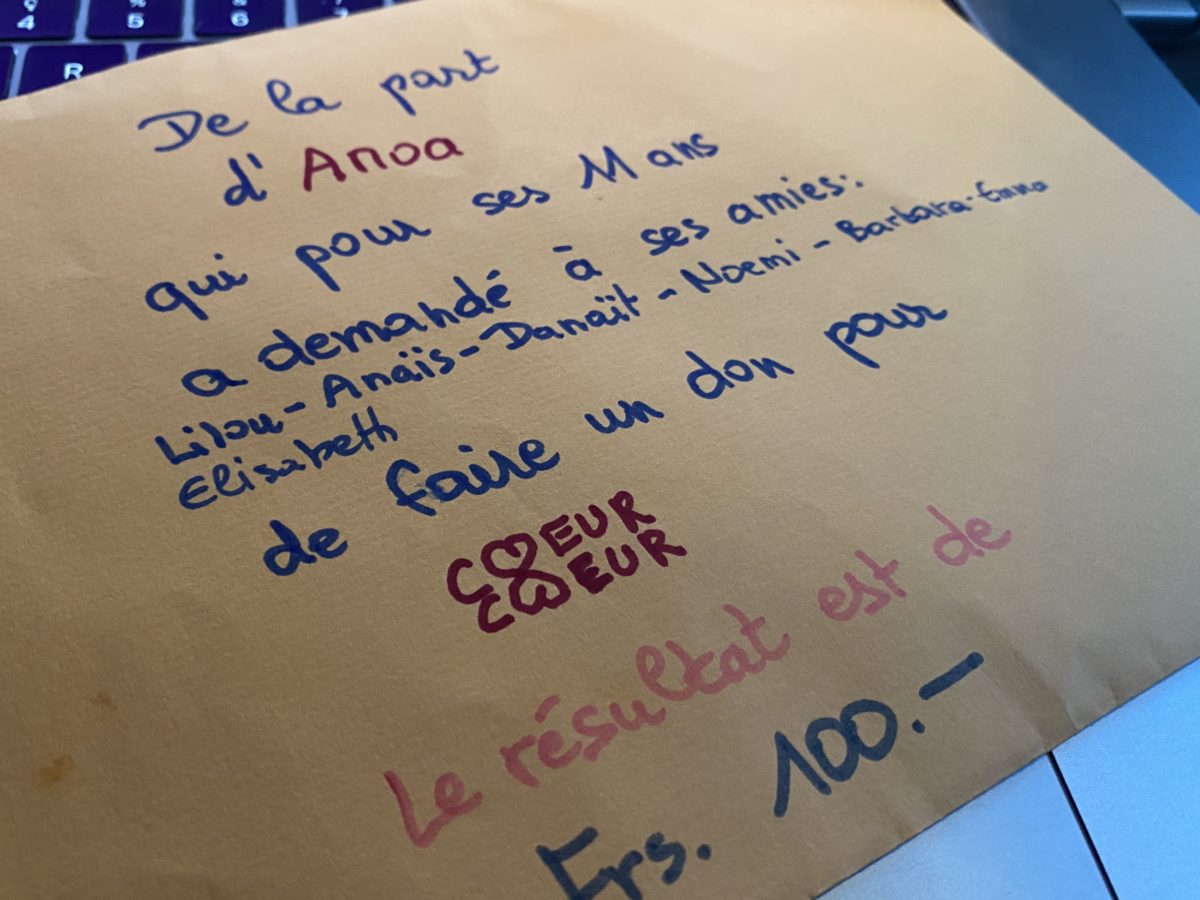 4
%
5
6
R
De la part
d' Anoa
qui pour ses 11 ans
a demandé à ses amies:
Lilou - Anaïs - Danaït - Noemi - Barbara - Enna
Elisabeth
de faire un don pour
COEUR
COEUR
Le résultat est de
Frs. 100.-